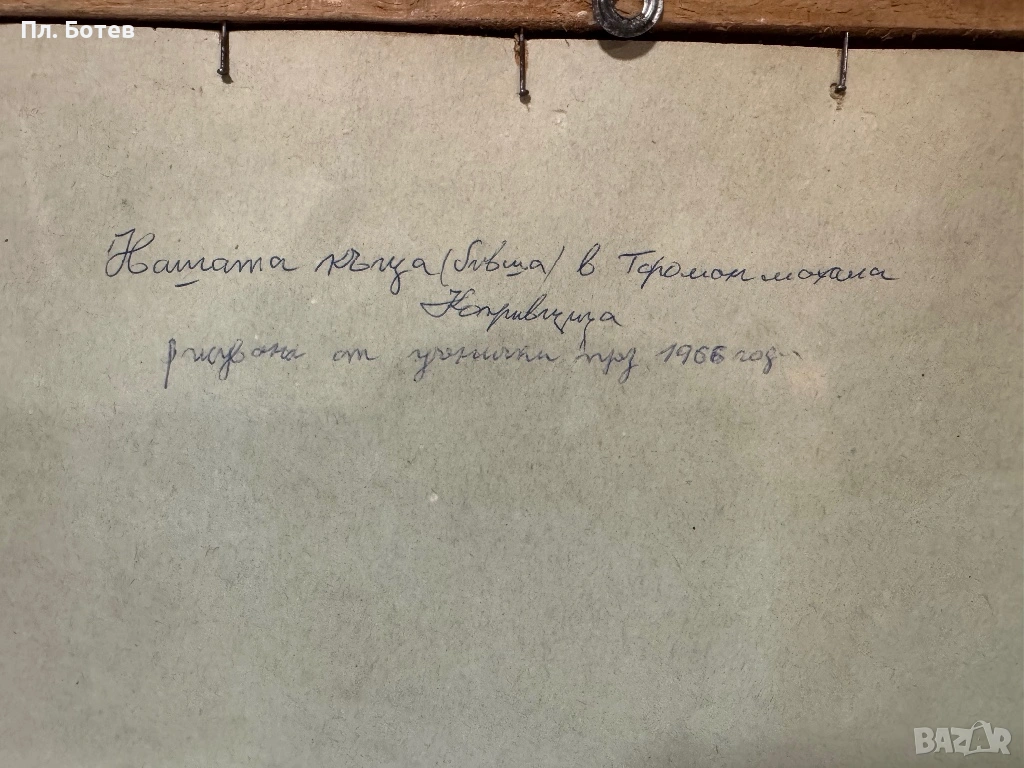 Пл. Ботев
Нашата къща (бивша) в
Копривщица
рисувана от ученички през 1966 год.
BAZAR